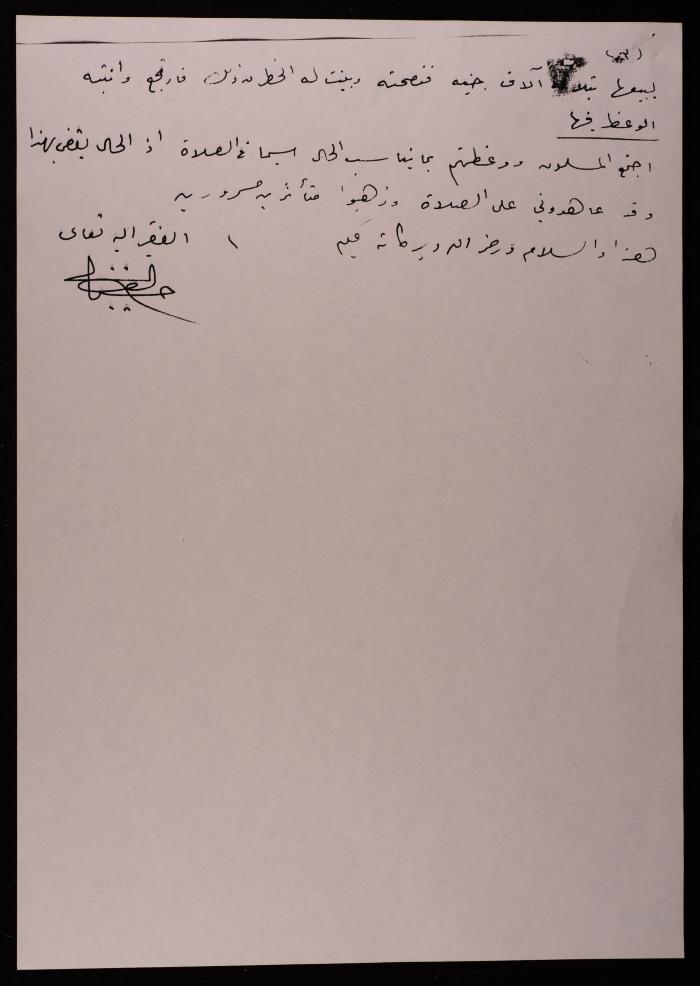 ليبيعها بثلاثة آلاف جنيه فنصحته وبينت له الخطر من ذلك فارتجع وانتبه
الوعظ فيها
اجتمع المسلمون ووعظتهم بما يناسب الحال سيما في الصلاة اذ الحال يقضي بهذا
وقد عاهدوني على الصلاة وذهبوا متأثرين مسرورين
هذا والسلام ورحمة الله وبركاته عليكم الفقير اليه تعالى